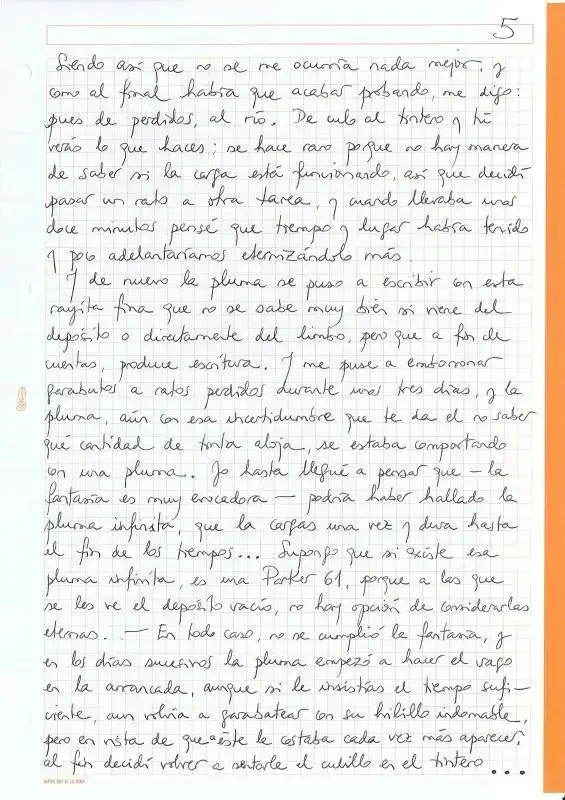 5
Siendo así que no se me ocurría nada mejor, y
como al final habría que acabar probando, me digo:
pues de perdidos, al río. De culo al tintero y tú
verás lo que haces; se hace raro porque no hay manera
de saber si la carga está funcionando, así que decidí
pasar un rato a otra tarea, y cuando llevaba unos
doce minutos pensé que tiempo y lugar había tenido
y poco adelantaríamos eternizándolo más.
Y de nuevo la pluma se puso a escribir con esta
rayita fina que no se sabe muy bien si viene del
depósito o directamente del limbo, pero que a fin de
cuentas, produce escritura. Y me puse a emborronar
garabatos a ratos perdidos durante unos tres días, y la
pluma, aún con esa incertidumbre que te da el no saber
qué cantidad de tinta aloja, se estaba comportando
con una pluma. Yo hasta llegué a pensar que — la
fantasía es muy evocadora — podría haber hallado la
pluma infinita, que la cargas una vez y dura hasta
el fin de los tiempos... Supongo que si existe esa
pluma infinita, es una Parker 61, porque a las que
se les ve el depósito vacío, no hay opción de considerarlas
eternas. — En todo caso, no se cumplió la fantasía, y
en los días sucesivos la pluma empezó a hacer el vago
en la arrancada, aunque si le insistías el tiempo sufi-
ciente, aun volvía a garabatear con su hilillo indomable,
pero en vista de que a éste le costaba cada vez más aparecer,
al fin decidí volver a sentarle el culillo en el tintero...